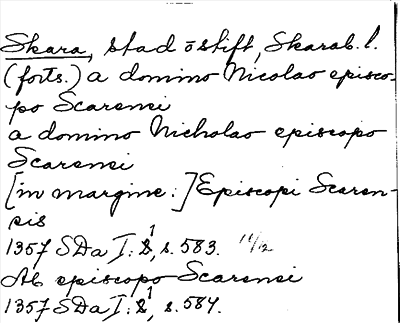 Skara, stad o stift, Skarab. l.
(forts.) a domino Nicolao episco-
po Scarensi
a domino Nicholao episcopo
Scarensi
[in margine:] Episcopi Scaren-
sis
1357 SDa I: 1, s. 583. 14/12
Ab episcopo Scarensi
1357 SDa I: 1, s. 584.